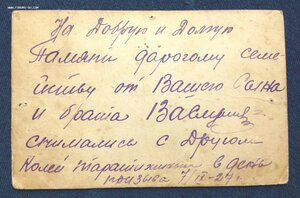 На Добрую и Долгую
Память дорогому семе-
йству от Вашего Сына
и брата
снимались с Другом
Колей в день
призыва 7/IX-27 г.